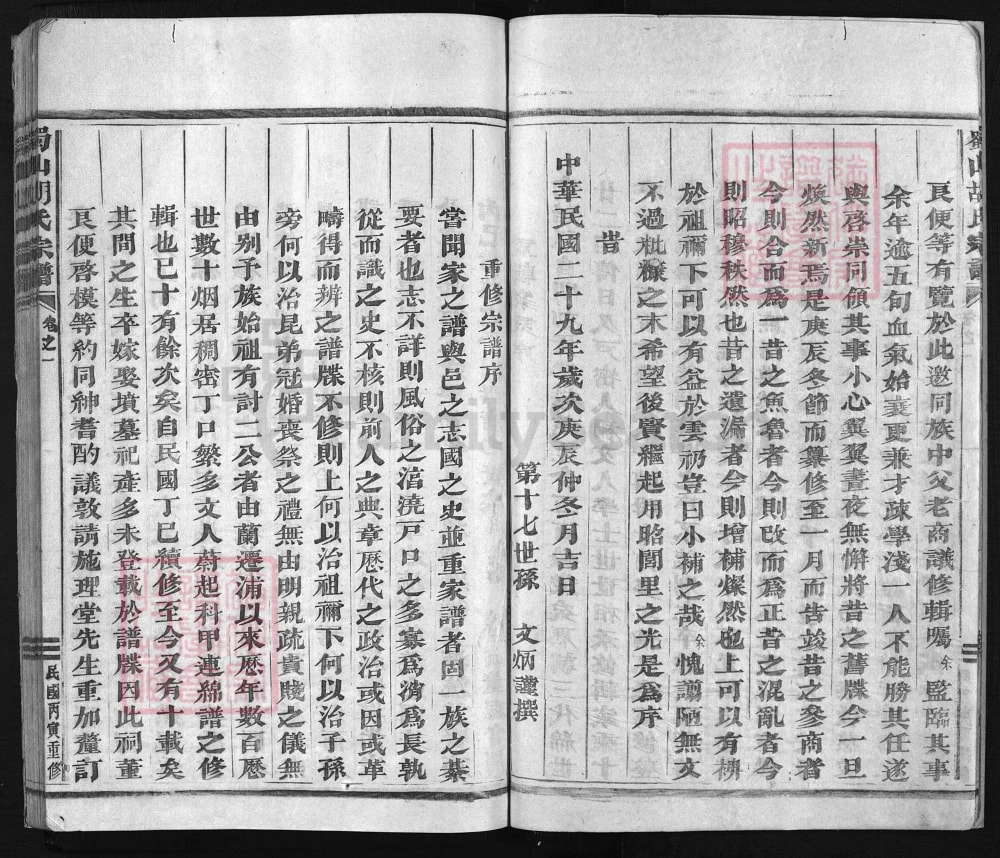 蜀山胡氏宗譜
良便等有覽於此邀同族中父老商議修輯囑余監臨其事
余年逾五旬血氣始衰更兼才疎學淺一人不能勝其任遂
與啓崇同領其事小心翼翼晝夜無懈將昔之舊牒今一旦
煥然新焉是庚辰冬節而纂修至一月而告竣昔之參商者
今則合而爲一昔之魚魯者今則改而爲正昔之混亂者今
則昭穆秩然也昔之遺漏者今則增補燦然也上可以有裨
於祖禰下可以有益於雲礽豈曰小補之哉余愧謭陋無文
不過粃糠之末希望後賢繼起用昭閭里之光是爲序
旹
中華民國二十九年歲次庚辰仲冬月吉日
第十七世孫 文炳謹撰
重修宗譜序
當聞家之譜與邑之志國之史並重家譜者固一族之綦
要者也志不詳則風俗之渞澆戸口之多寡爲淆爲長孰
從而識之史不核則前人之典章歷代之政治或因或革
疇得而辨之譜牒不修則上何以治祖禰下何以治子孫
旁何以治昆弟冠婚喪祭之禮無由明親疏貴賤之儀無
由別予族始祖有討二公者由蘭遷浦以來歷年數百歷
世數十烟居稠密丁口繁多文人蔚起科甲連綿譜之修
輯也已十有餘次矣自民國丁巳續修至今又有十載矣
其間之生卒嫁娶墳墓祀産多未登載於譜牒因此祠董
良便啓模等約同紳耆酌議敦請施理堂先生重加釐訂
蜀山胡氏宗譜
卷之一
民國丙寅重修